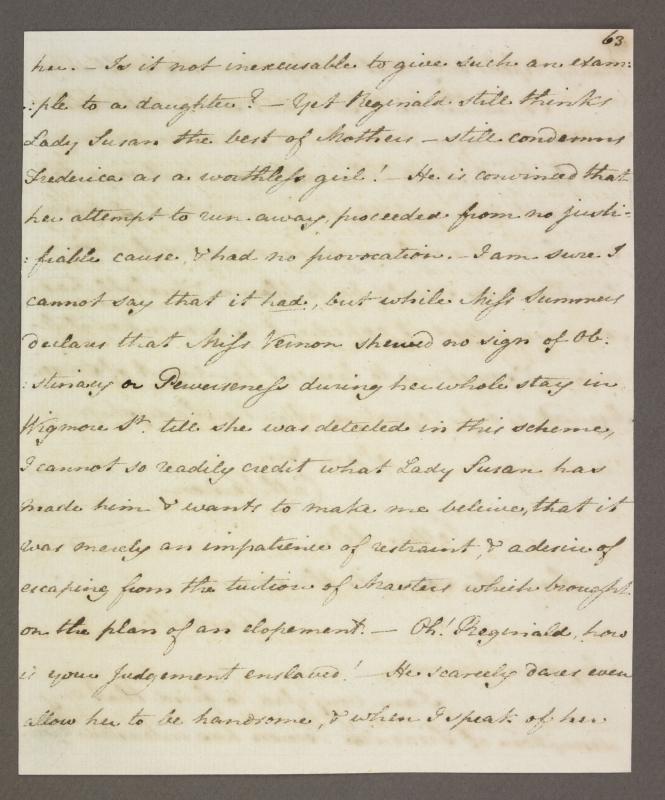 63
her. – Is it not inexcusable to give such an exam:
:ple to a daughter? – Yet Reginald still thinks
Lady Susan the best of Mothers – still condemns
Frederica as a worthless girl! – He is convinced that
her attempt to run away, proceeded from no justi:
:fiable cause, & had no provocation. – I am sure I
cannot say that it had, but while Miss Summers
declares that Miss Vernon shewed no sign of Ob:
:stinacy or Perverseness during her whole stay in
Wigmore St. till she was detected in this scheme,
I cannot so readily credit what Lady Susan has
made him & wants to make me beleive, that it
was merely an impatience of restraint, & a desire of
escaping from the tuition of Masters which brought
on the plan of an elopement. – Oh! Reginald, how
is your Judgement enslaved! – He scarcely dares even
allow her to be handsome, & when I speak of her